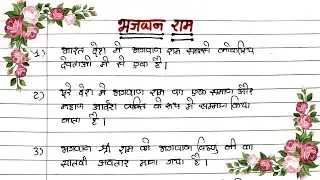 भगवान राम
1) भारत देश में भगवान राम सबसे लोकप्रिय
देवताओं में से एक है।
2) पूरे देश में भगवान राम का एक समान और
महान आदर्श व्यक्ति के रूप में सम्मान किया
जाता है।
3) भगवान श्री राम को भगवान विष्णु जी का
सातवाँ अवतार माना गया है।